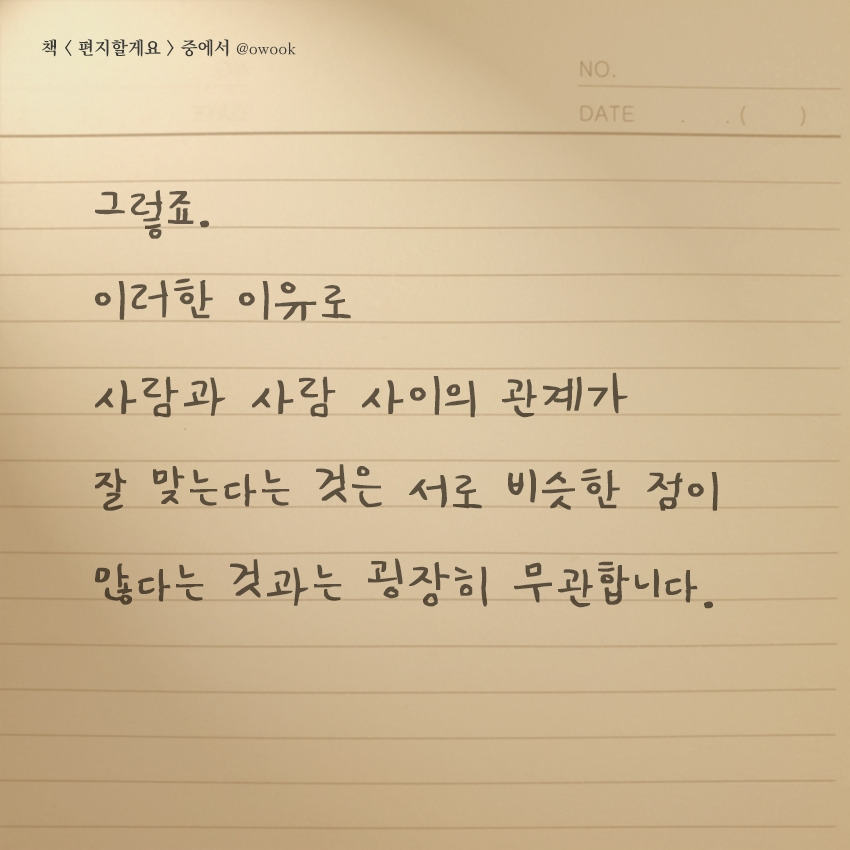 책 < 편지할게요 > 중에서 @owook
NO.
DATE . . ( )
그렇죠.
이러한 이유로
사람과 사람 사이의 관계가
잘 맞는다는 것은 서로 비슷한 점이
많다는 것과는 굉장히 무관합니다.